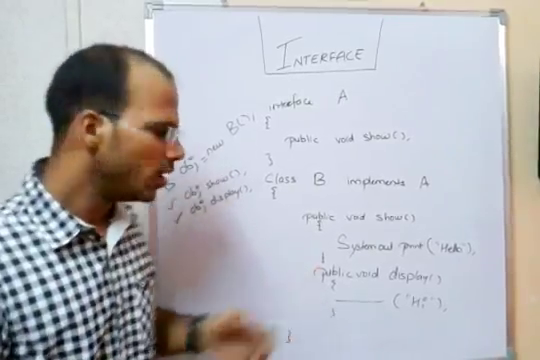 INTERFACE
interface A
{
public void show();
}
Class B implements A
{
public void show()
{
System.out.print("Hello");
}
public void display()
{
("Hi");
}
}
B obj = new B();
✓ obj.show();
✓ obj.display();